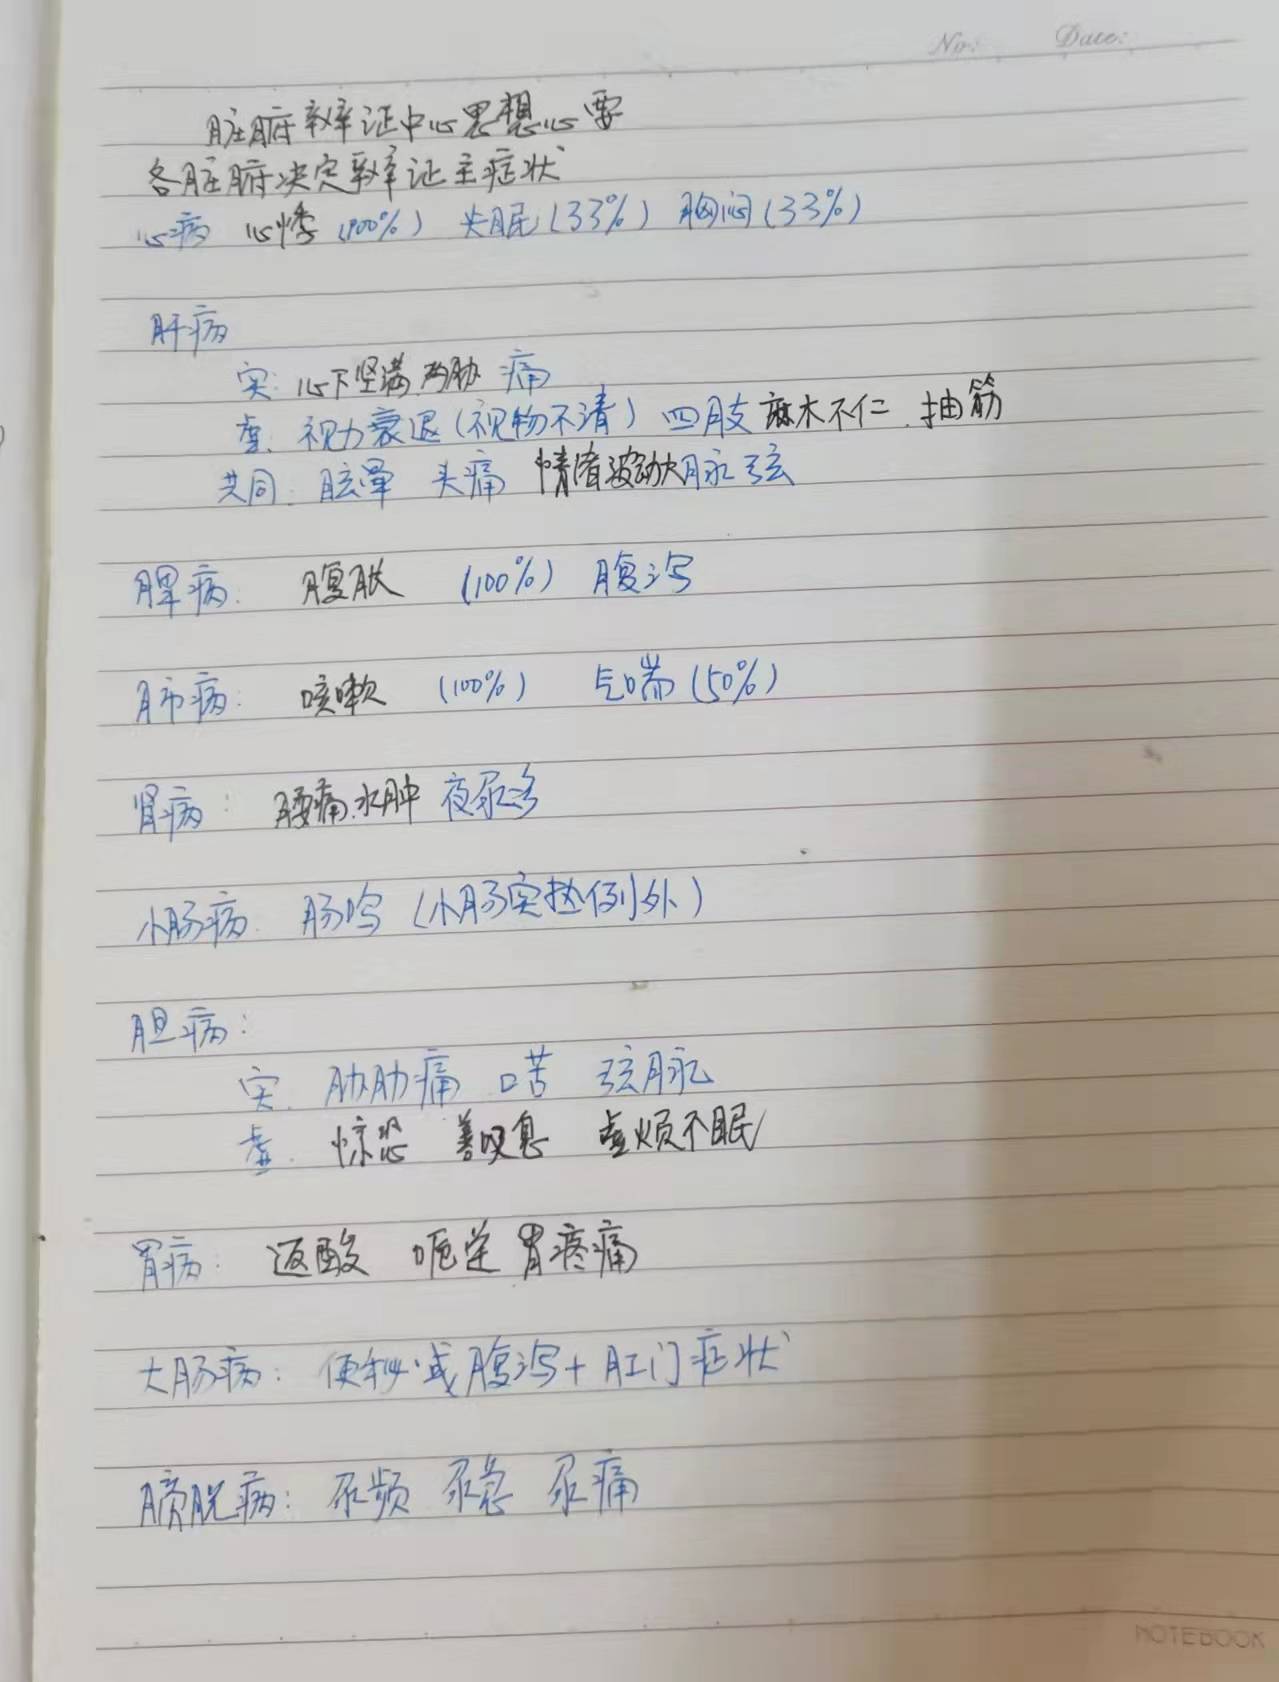 No: Date:
脏腑辩证中心思想心要
各脏腑决定辩证主症状
心病 心悸(100%) 失眠(33%) 胸闷(33%)
肝病
实: 心下坚满.两胁 痛
虚. 视力衰退(视物不清) 四肢麻木不仁.抽筋
共同. 眩晕 头痛 情绪波动大脉弦
脾病. 腹胀 (100%) 腹泻
肺病: 咳嗽 (100%) 气喘(50%)
肾病: 腰痛.水肿 夜尿多
小肠病. 肠鸣(小肠实热例外)
胆病:
实. 胁肋痛 口苦 弦脉
虚. 惊恐 善叹息 虚烦不眠
胃病: 返酸 呃逆 胃疼痛
大肠病: 便秘或腹泻+肛门症状
膀胱病: 尿频 尿急 尿痛
NOTEBOOK